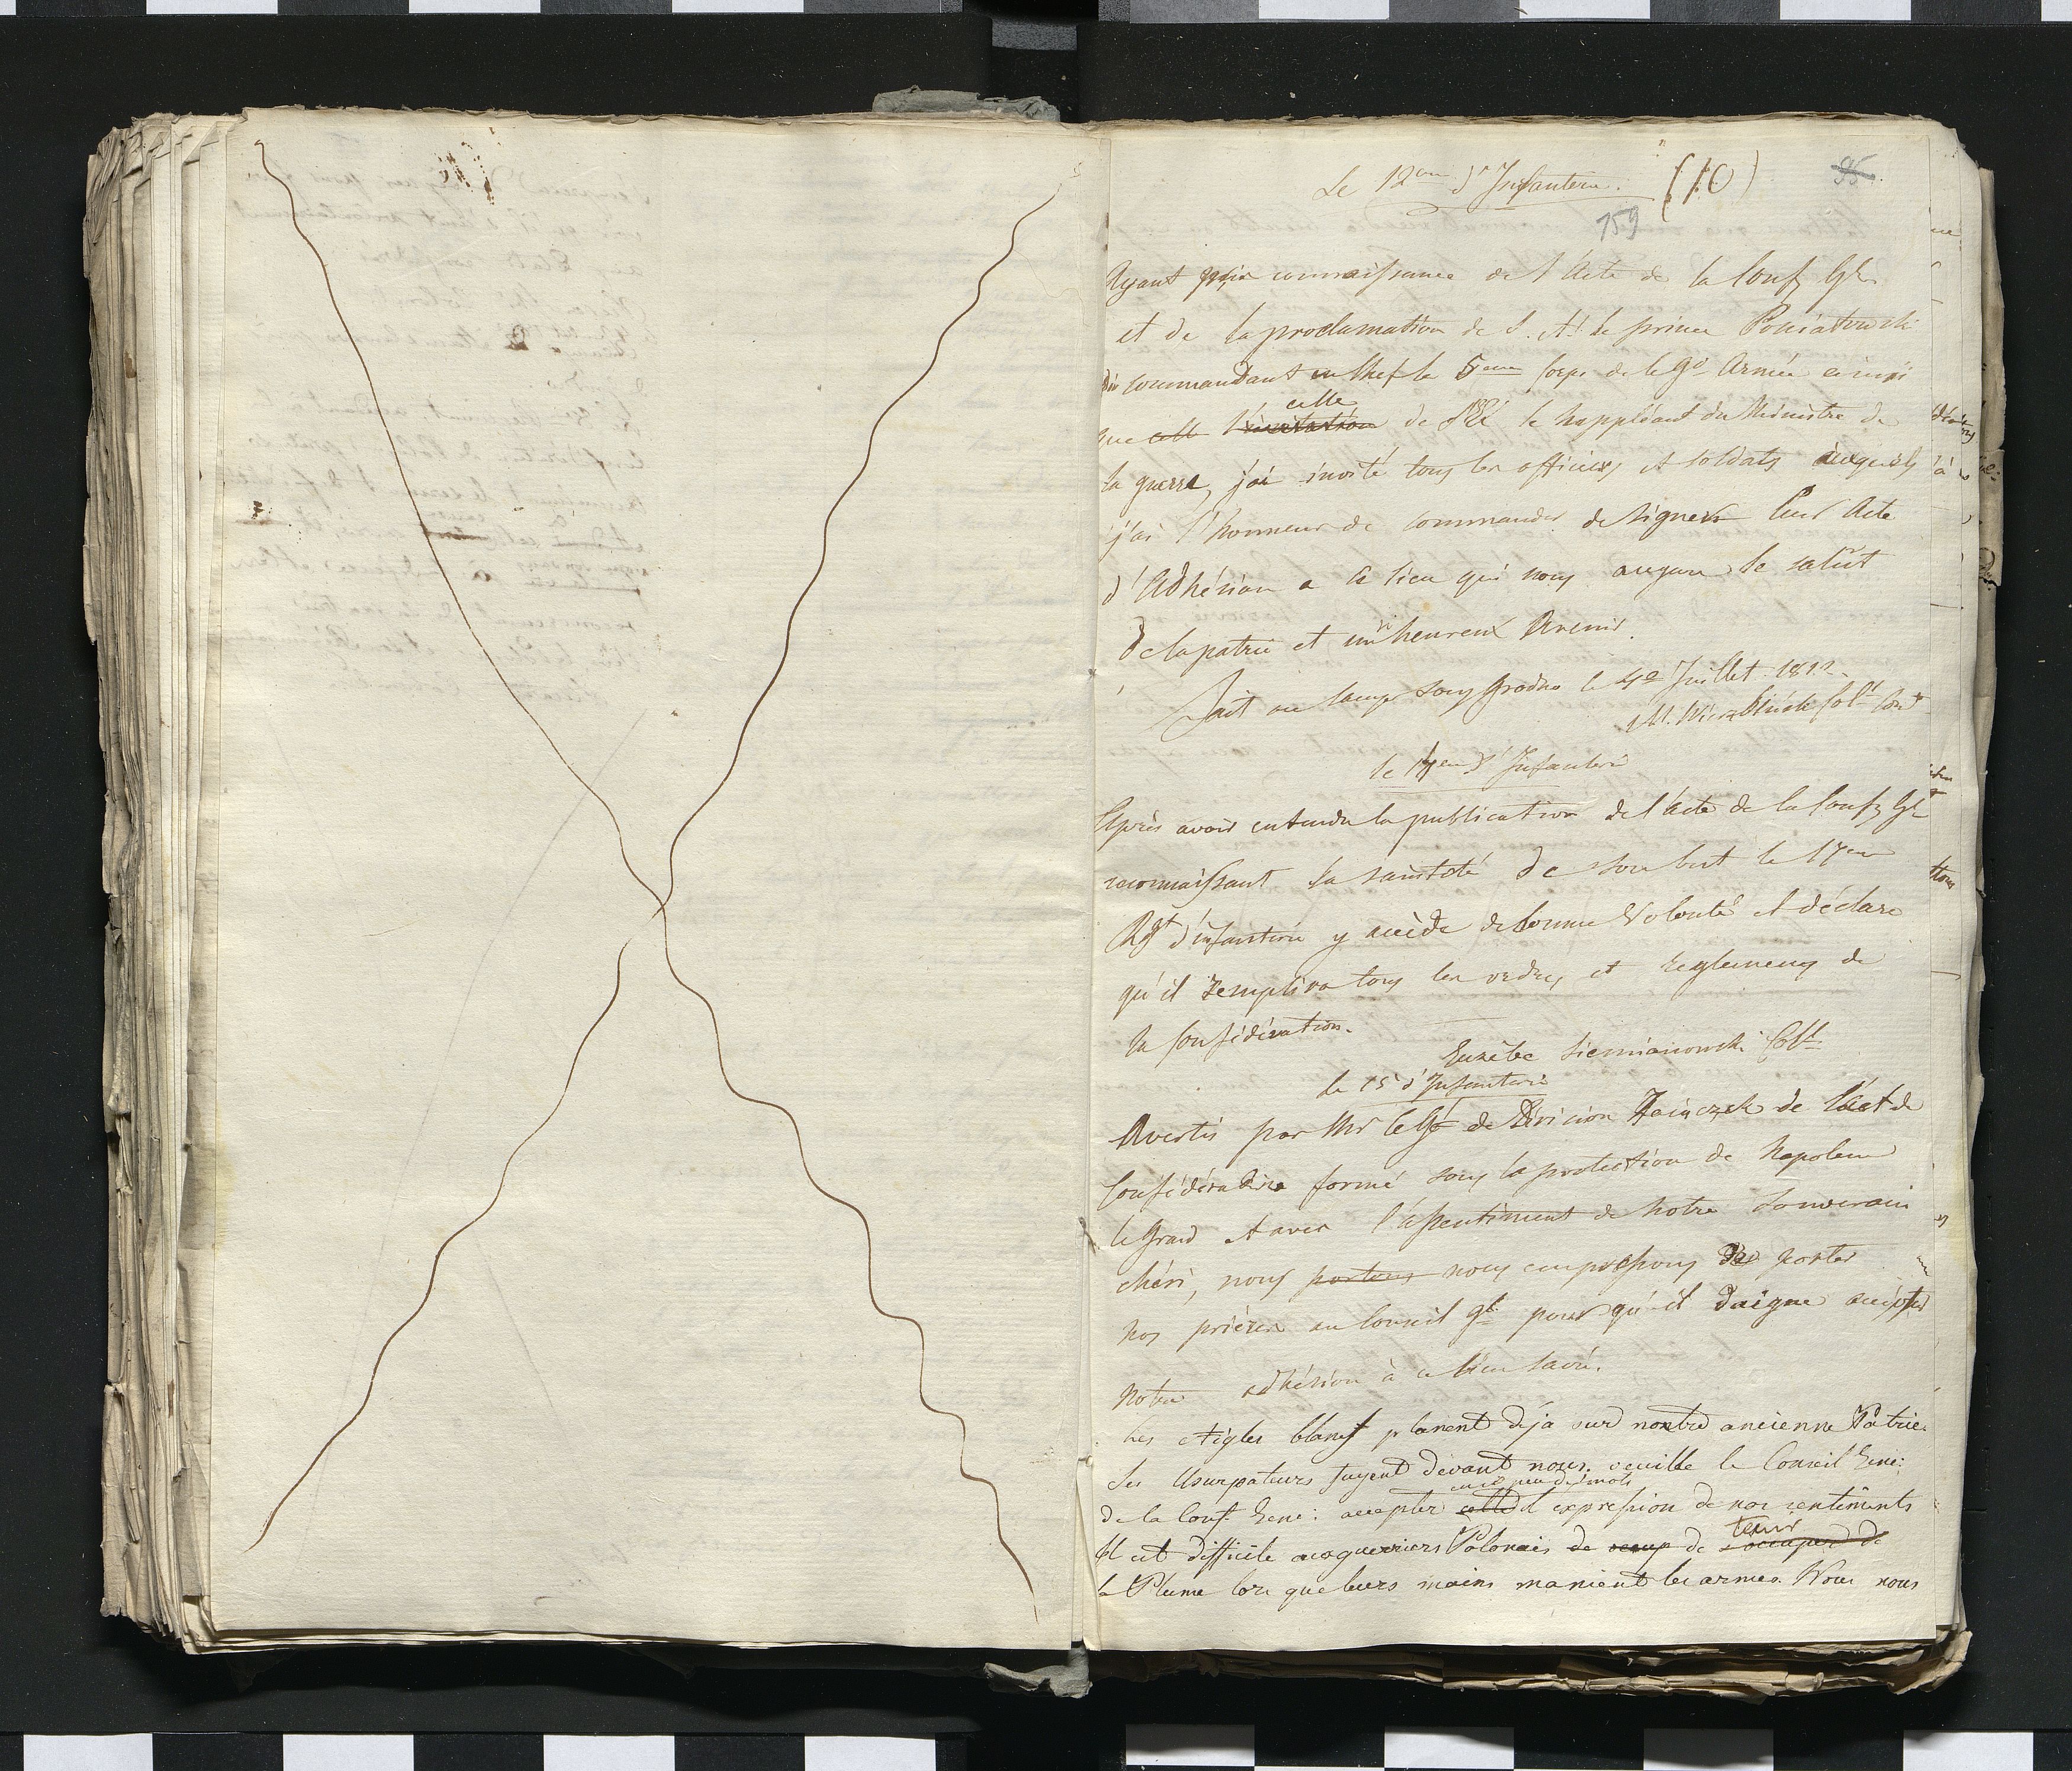 Le 12me d'Infanterie. (10) 95.
159
Ayant pris connaissance de l'Acte de la Conf Gle
et de la proclamation de S. A. le prince Poniatowski
commandant en Chef le 5eme Corps de la Gde Armée ainsi
celle
que celle l'invitation de le suppléant du Ministre de
la guerre, j'ai invité tous les officiers et soldats auquels
j'ai l'honneur de commander de signer leur Acte
d'Adhésion a ce lien qui nous augure le salut
de la patrie et un heureux Avenir.
Fait au camp sous Grodno le Juillet 1812.
le 17em d'Infanterie
Après avoir entendu la publication de l'acte de la Conf Gle
reconnaissant la sainteté de son but le 17em
Rgt d'infanterie y accède de bonne Volonté et déclare
qu'il remplira tous les ordres et reglemens de
la Confédération.
Euzèbe Siemianowski Colel
le 15 d'Infanterie
Avertis par Mr le Gl de Division Zaiączek de l'act de
Confédération formé sous la protection de Napoleon
le Grand et avec l'assentiment de notre Souverain
chéri, nous portons nous empressons de porter
nos prières au Conseil Gl pour qu'il daigne accepter
notre adhésion à ce lien sacré.
Les Aigles blancs planent déja sur nontre ancienne Patrie.
Les Usurpateurs fuyent devant nous. veuille le Conseil Gene:
en peu de mots
de la Conf. Gene: accepter cette l'expression de nos sentiments
tenir
Il est difficile aux guerriers Polonais de occup de s'occuper de
la Plume lors que leurs mains manient les armes. Nous nous